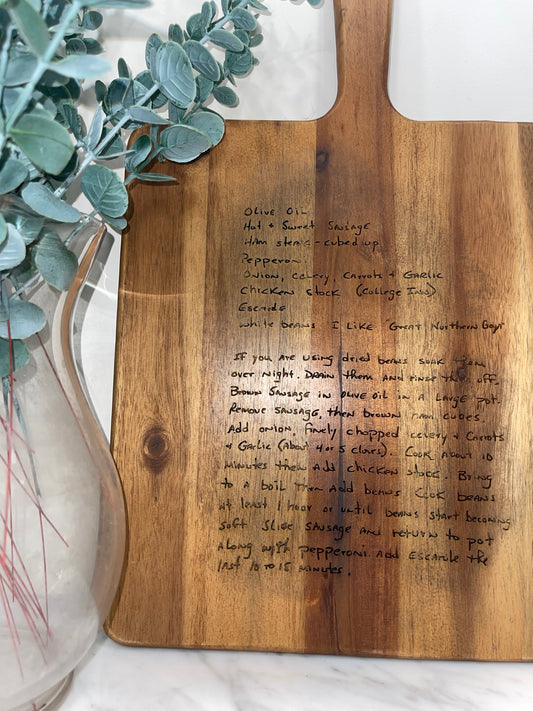 Olive Oil
Hot & Sweet Sausage
Ham steak - cubed up
Pepperoni
Onion, celery, carrots & Garlic
Chicken stock (College Inn)
Escarole
white beans I like "Great Northern Goya"
If you are using dried beans soak them
over night. Drain them and rinse them off.
Brown Sausage in olive oil in a large pot.
Remove sausage, then brown ham cubes.
Add onion, finely chopped celery & Carrots
& Garlic (About 4 or 5 cloves). Cook about 10
minutes then add chicken stock. Bring
to a boil then add beans. Cook beans
at least 1 hour or until beans start becoming
soft. Slice sausage and return to pot
along with pepperoni. Add escarole the
last 10 to 15 minutes.